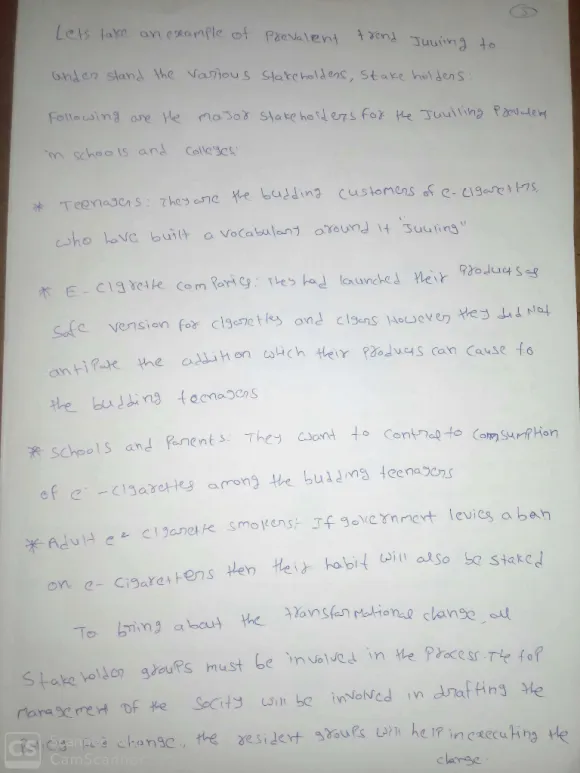 5
Lets take an example of Prevalent trend Juuiing to
understand the various stakeholders, stake holders.
Following are the major stakeholders for the Juuiling Prevalent
in schools and colleges.
* Teenagers: They are the budding customers of e-cigarettes
who have built a vocabulary around it "Juuring"
* E-cigrette companies: They had launched their products as
safe version for cigarettes and cigars However, they did not
antipate the addition which their products can cause to
the budding teenagers
* Schools and Parents: They want to control to comsumption
of e-cigarettes among the budding teenagers
* Adult e cigarette smokers: If government levies a ban
on e-cigarettens then their habit will also be staked
To bring about the transformational change, all
stakeholder groups must be involved in the process. The top
management of the socity will be involved in drafting the
change, the resident groups will help in executing the
change.
CS
CamScanner